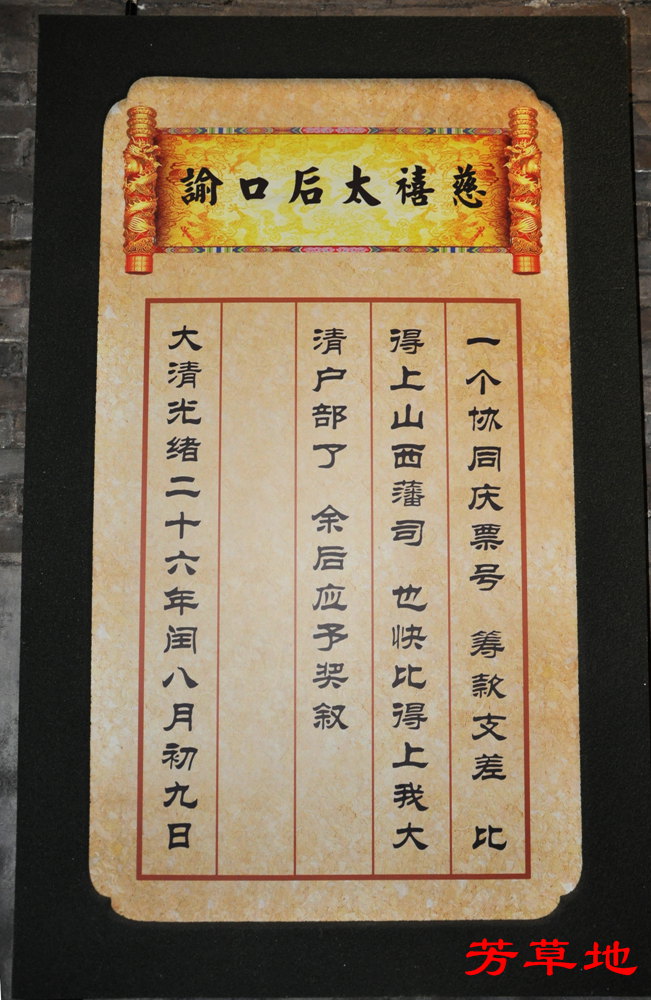 慈禧太后口諭
一个协同庆票号 筹款支差 比
得上山西藩司 也快比得上我大
清户部了 余后应予奖叙
大清光绪二十六年闰八月初九日
芳草地